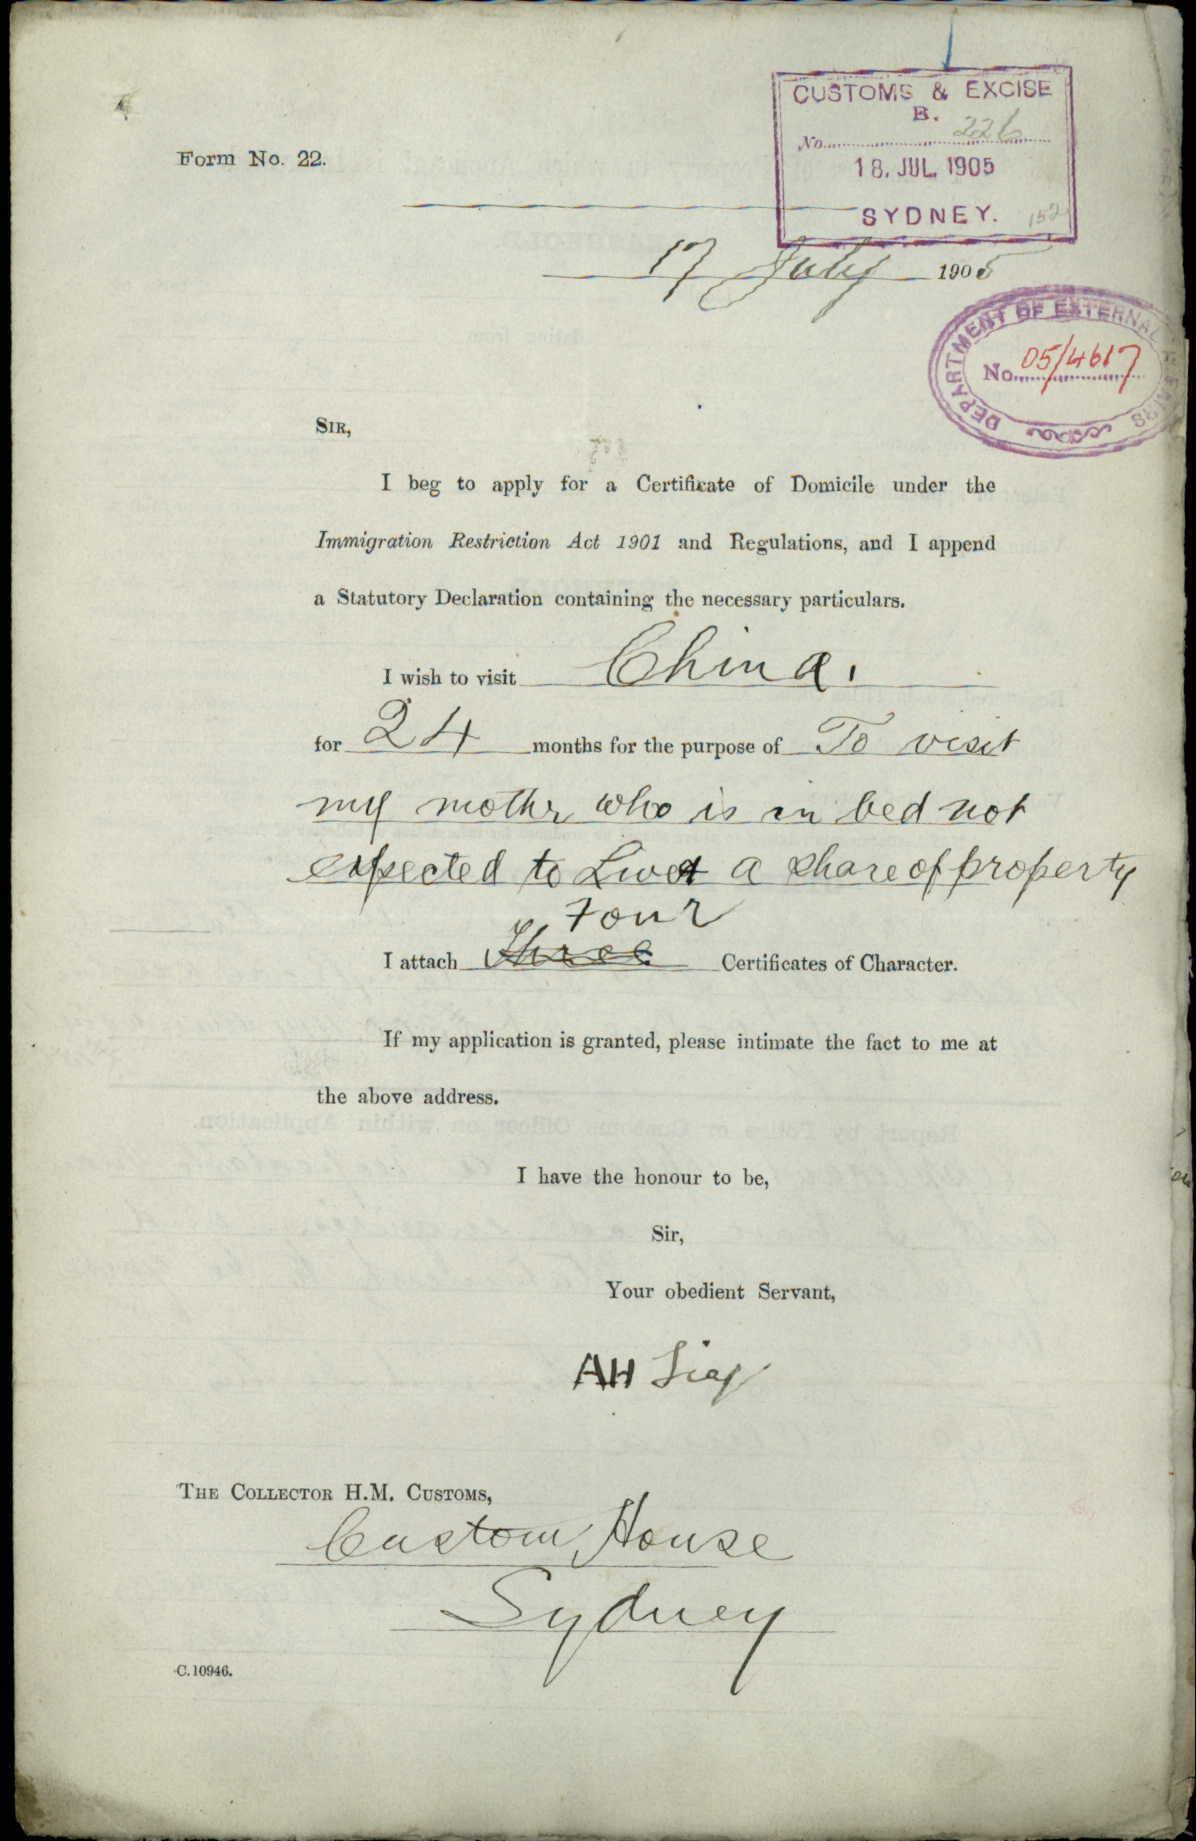 CUSTOMS & EXCISE
B.
No. 226
18. JUL. 1905
SYDNEY. 152
Form No. 22.
17 July 1905
DEPARTMENT OF EXTERNAL AFFAIRS
No. 05/4617
SIR,
I beg to apply for a Certificate of Domicile under the
Immigration Restriction Act 1901 and Regulations, and I append
a Statutory Declaration containing the necessary particulars.
I wish to visit China.
for 24 months for the purpose of To visit
my mother who is in bed not
expected to Live & a share of property
Four
I attach Three Certificates of Character.
If my application is granted, please intimate the fact to me at
the above address.
I have the honour to be,
Sir,
Your obedient Servant,
AH
THE COLLECTOR H.M. CUSTOMS,
Custom House
Sydney
C.10946.